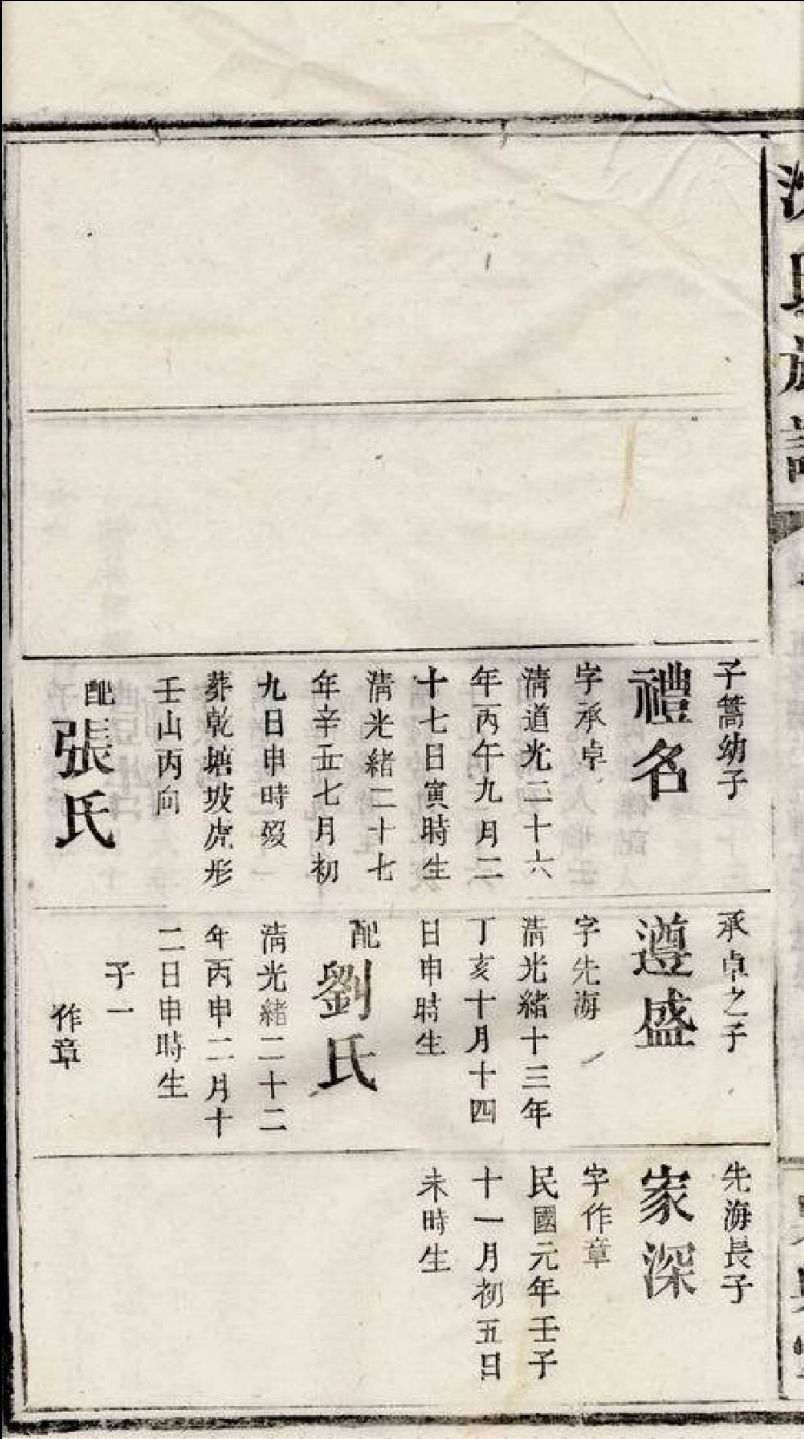 氏族譜
子篙幼子
禮名
字承卓
清道光二十六
年丙午九月二
十七日寅時生
清光緒二十七
年辛丑七月初
九日申時歿
葬乾塘坡虎形
壬山丙向
配張氏
承卓之子
遵盛
字先海
清光緒十三年
丁亥十月十四
日申時生
配劉氏
清光緒二十二
年丙申二月十
二日申時生
子一
作章
先海長子
家深
字作章
民國元年壬子
十一月初五日
未時生